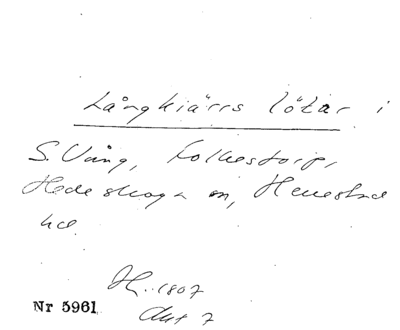 Långkiärrs lötar i
S. Vång, Folkestorp,
Hedeskoga sn, Herrestad
hd.
H. 1807
Akt 7
Nr 5961